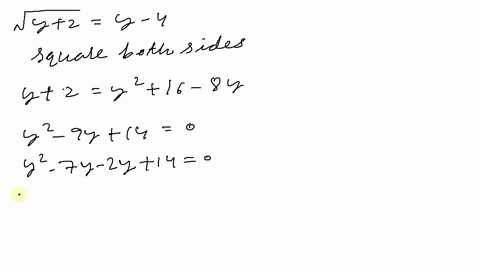 √y+2 = y-4
square both sides
y+2 = y²+16-8y
y²-9y+14 = 0
y²-7y-2y+14=0